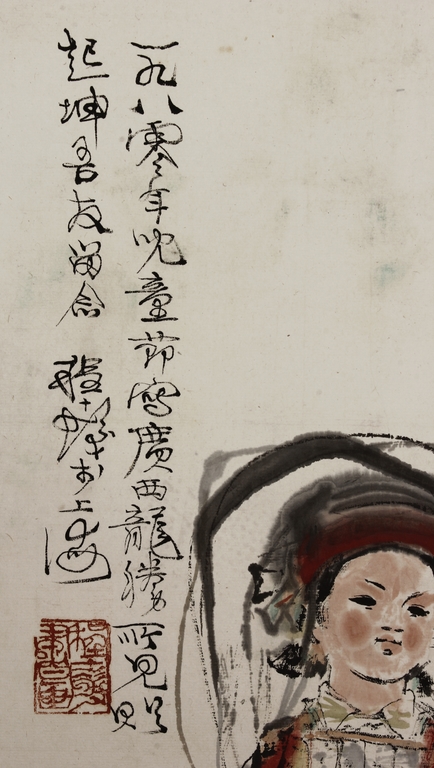 一九八零年児童節寫廣西龍勝所見
起坤吾友留念 程十髮於上海
程十髮書畫